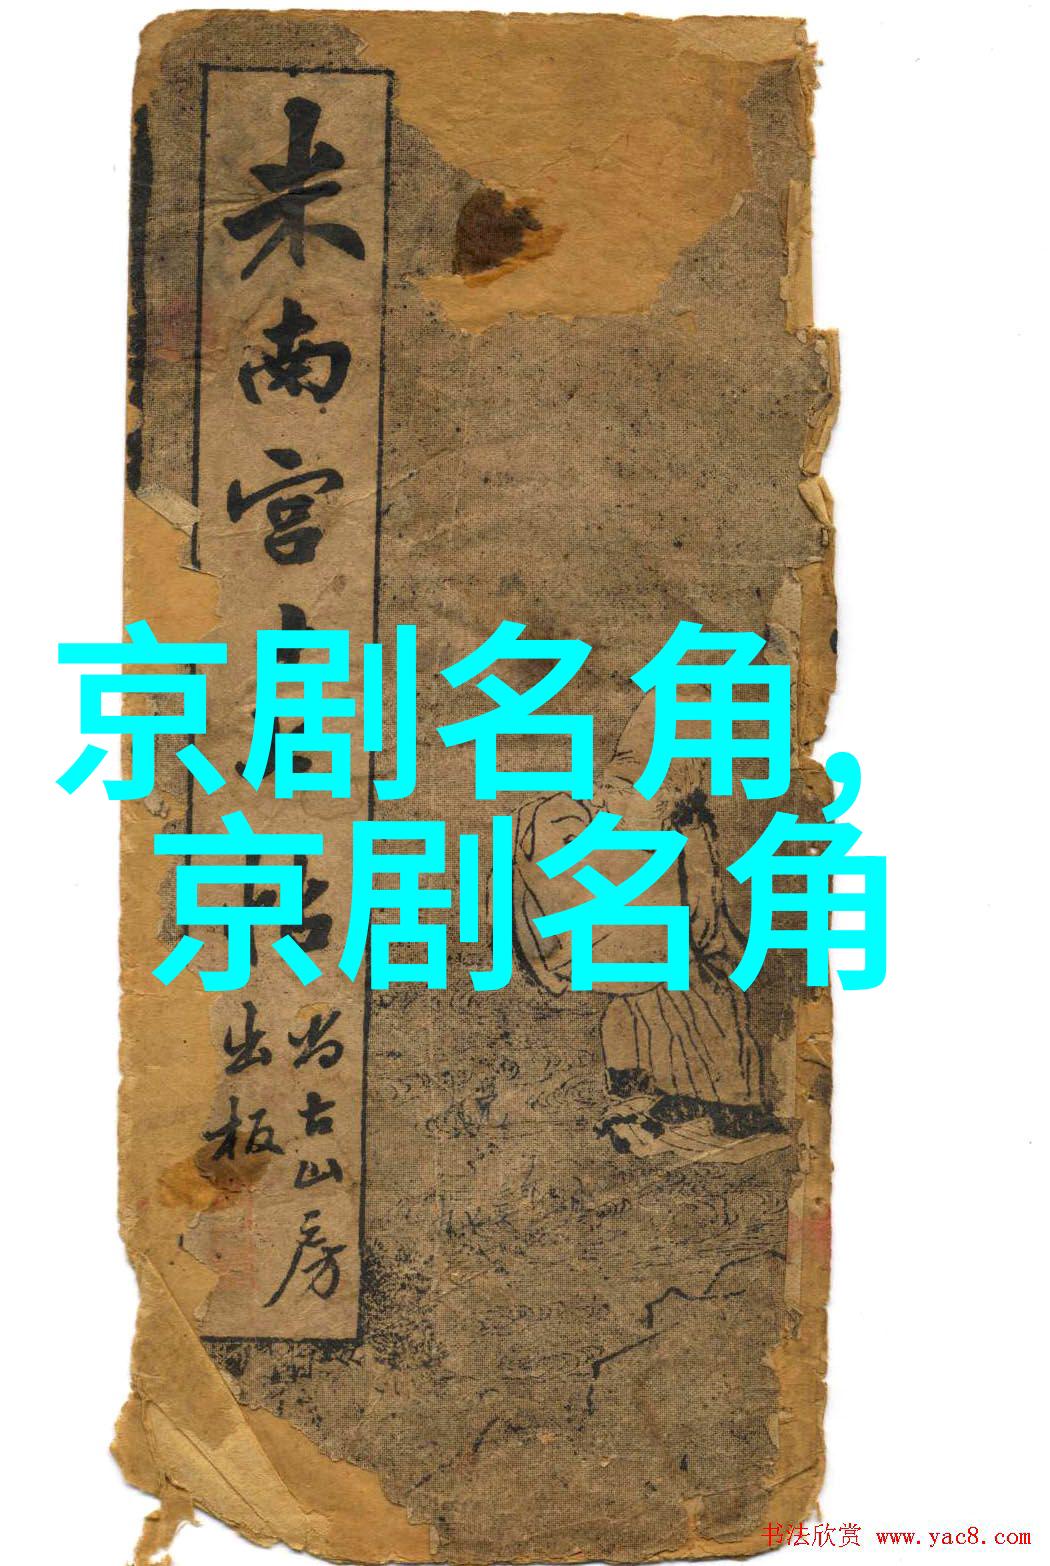 米南宫
尚古山房
出板
京剧名角,
京剧名角
书法欣赏 www.yac8.com